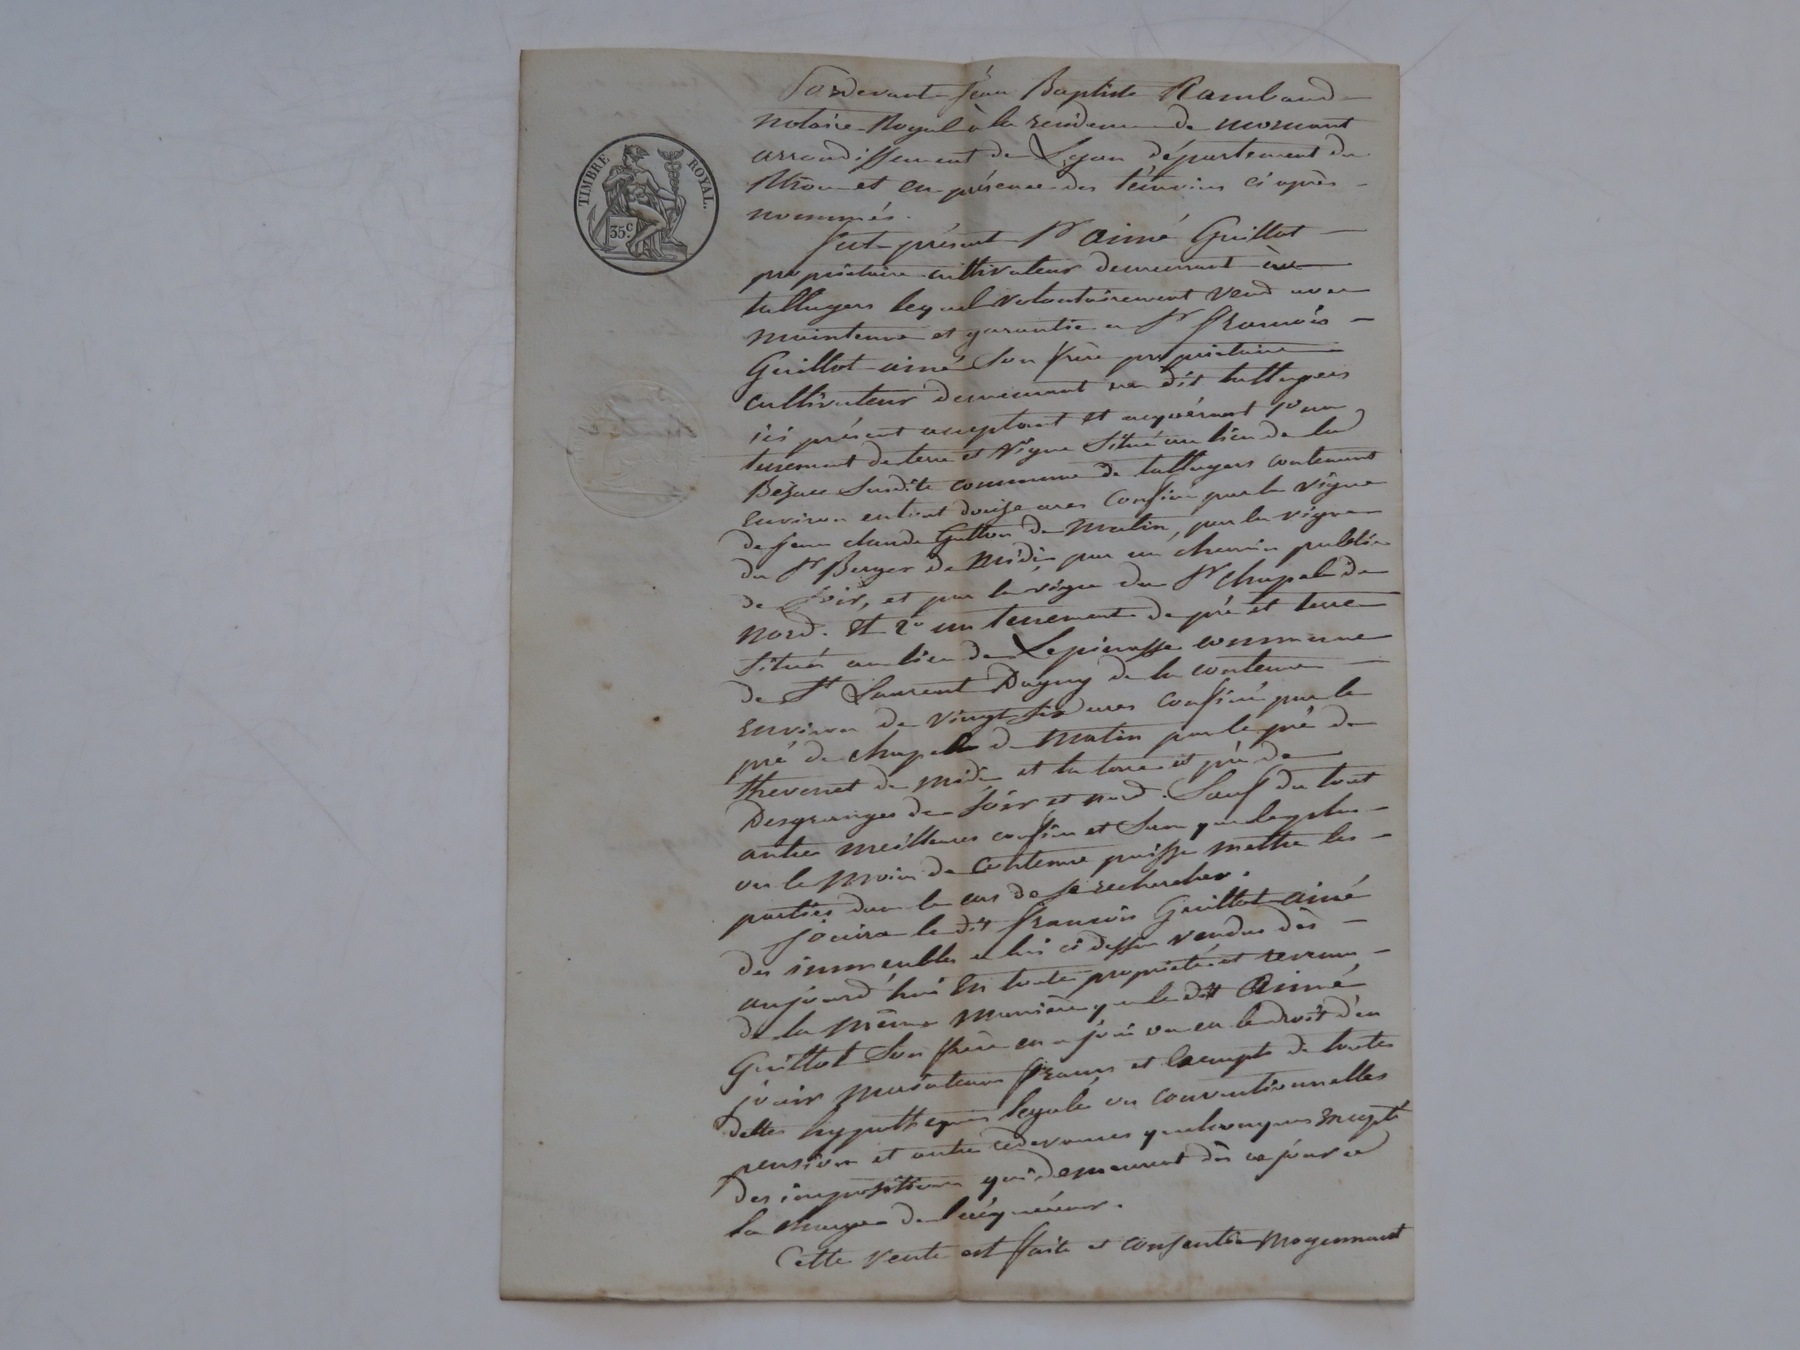 TIMBRE ROYAL.
35c.
Pardevant Jean Baptiste Rambaud
notaire Royal à la résidence de mornant
arrondissement de Lyon département du
Rhône et en présence des témoins ci après
nommés.
fut présent Sr aimé Guillot
propriétaire cultivateur demeurant à
talluyers lequel volontairement vend avec
maintenue et garantie a Sr francois
Guillot ainé son frère propriétaire
cultivateur demeurant au dit talluyers
ici présent acceptant et acquérant 1° un
tennement de terre et Vigne situé au lieu de la
susdite commune de talluyers contenant
environ entout douze ares confiné par la vigne
de jean claude Gutton de Matin, par la vigne
du Sr Berger de Midi par un chemin public
de soir, et par la vigne du Sr chapale de
nord. Et 2° un tennement de pré et terre
situés au lieu de commune
de St Laurent Dagny de la contenue
environ de vingt six ares confiné par le
pré de de Matin par le pré de
thevenet de midi et la terre et pré de
Desgranges de soir et nord. Sauf du tout
autres meilleures confins et sans que le plus
ou le moins de contenue puisse mettre les
parties dans le cas de se rechercher.
Jouira le dit francois Guillot ainé
des immeubles a lui ci dessus vendus dès
aujourd'hui En toute propriété et revenus
de la même manière que le dit Aimé
Guillot Son frère en a joui ou eu le droit d'en
jouir maintenus francs et Exempts de toutes
dettes hypothèques légales ou conventionnelles
pension et autres redevances quelconques excepté
des impositions qui demeurent dès ce jour a
la charge de l'acquéreur.
Cette vente est faite et consentie Moyennant